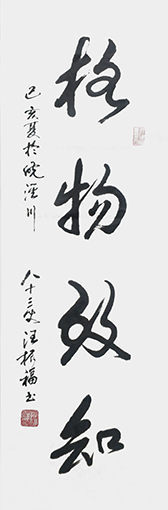 格物致知
己亥夏於皖泾川
八十三叟汪振福书